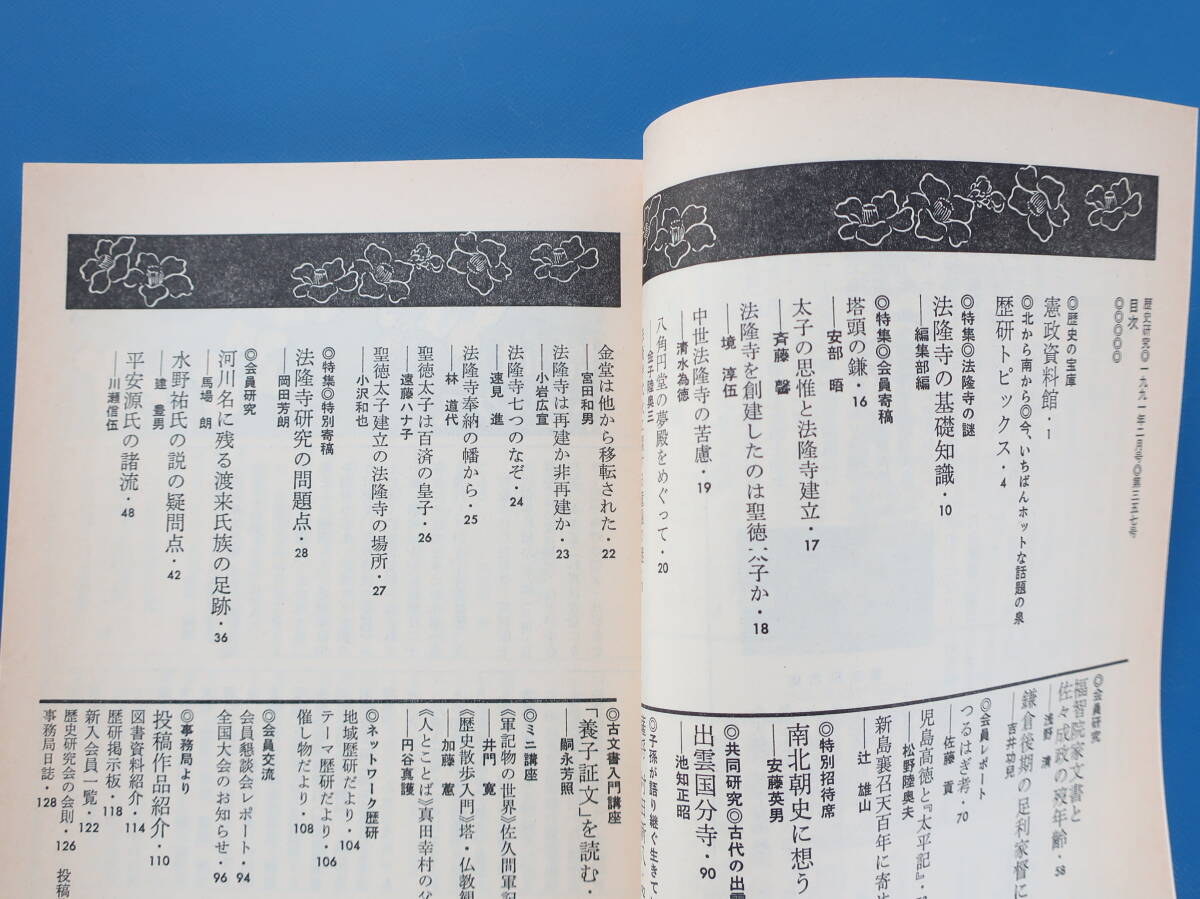 歴史研究◎一九九一年二月号◎第三五七号
目次
◎◎◎◎◎
◎歴史の宝庫
憲政資料館・1
◎北から南から◎今、いちばんホットな話題の泉
歴研トピックス・4
◎特集◎法隆寺の謎
法隆寺の基礎知識・10
──編集部編
◎特集◎会員寄稿
塔頭の鎌・16
──安部 晤
太子の思惟と法隆寺建立・17
──斉藤 馨
法隆寺を創建したのは聖徳太子か・18
──境 淳伍
中世法隆寺の苦慮・19
──清水為徳
八角円堂の夢殿をめぐって・20
──金子陸奥三
◎会員研究
福智院家文書と
佐々成政の歿年齢・58
──浅野 清
鎌倉後期の足利家督に
──吉井功兒
◎会員レポート
つるはぎ考・70
──佐藤 貢
児島高徳と『太平記』・
──松野陸奥夫
新島襄召天百年に寄せ
──辻 雄山
◎特別招待席
南北朝史に想う
──安藤英男
◎共同研究◎古代の出雲
出雲国分寺・90
──池知正昭
◎子孫が語り継ぐ生きて
金堂は他から移転された・22
──宮田和男
法隆寺は再建か非再建か・23
──小岩広宣
法隆寺七つのなぞ・24
──速見 進
法隆寺奉納の幡から・25
──林 道代
聖徳太子は百済の皇子・26
──遠藤ハナ子
聖徳太子建立の法隆寺の場所・27
──小沢和也
◎特集◎特別寄稿
法隆寺研究の問題点・28
──岡田芳朗
◎会員研究
河川名に残る渡来氏族の足跡・36
──馬場 朗
水野祐氏の説の疑問点・42
──建 豊男
平安源氏の諸流・48
──川瀬信伍
◎古文書入門講座
「養子証文」を読む・
──嗣永芳照
◎ミニ講座
《軍記物の世界》佐久間軍記
──井門 寛
《歴史散歩入門》塔・仏教観
──加藤 蕙
《人とことば》真田幸村の父
──円谷真護
◎ネットワーク歴研
地域歴研だより・104
テーマ歴研だより・106
催し物だより・108
◎会員交流
会員懇談会レポート・94
全国大会のお知らせ・96
◎事務局より
投稿作品紹介・110
図書資料紹介・114
歴研掲示板・118
新入会員一覧・122
歴史研究会の会則・126
事務局日誌・128
投稿